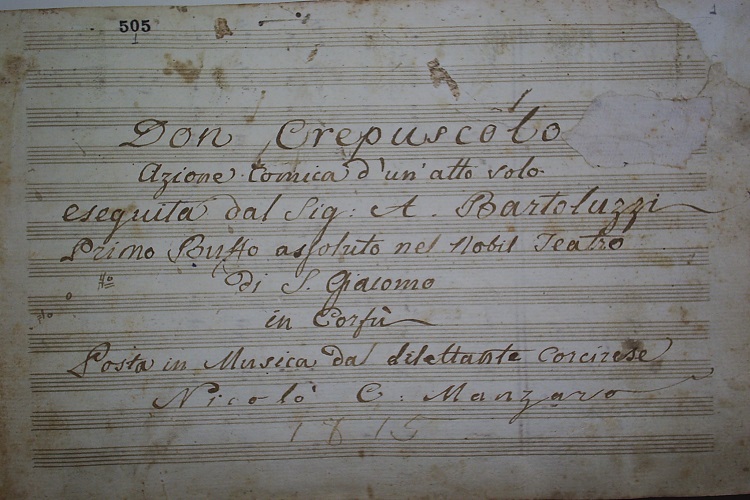 505
Don Crepuscolo
Azione Comica d'un' atto solo
eseguita dal Sig: A. Bartoluzzi
Primo Buffo assoluto nel Nobil Teatro
Di S. Giacomo
in Corfù
Posta in Musica dal dilettante Corcirese
Nicolò C: Manzaro
1815